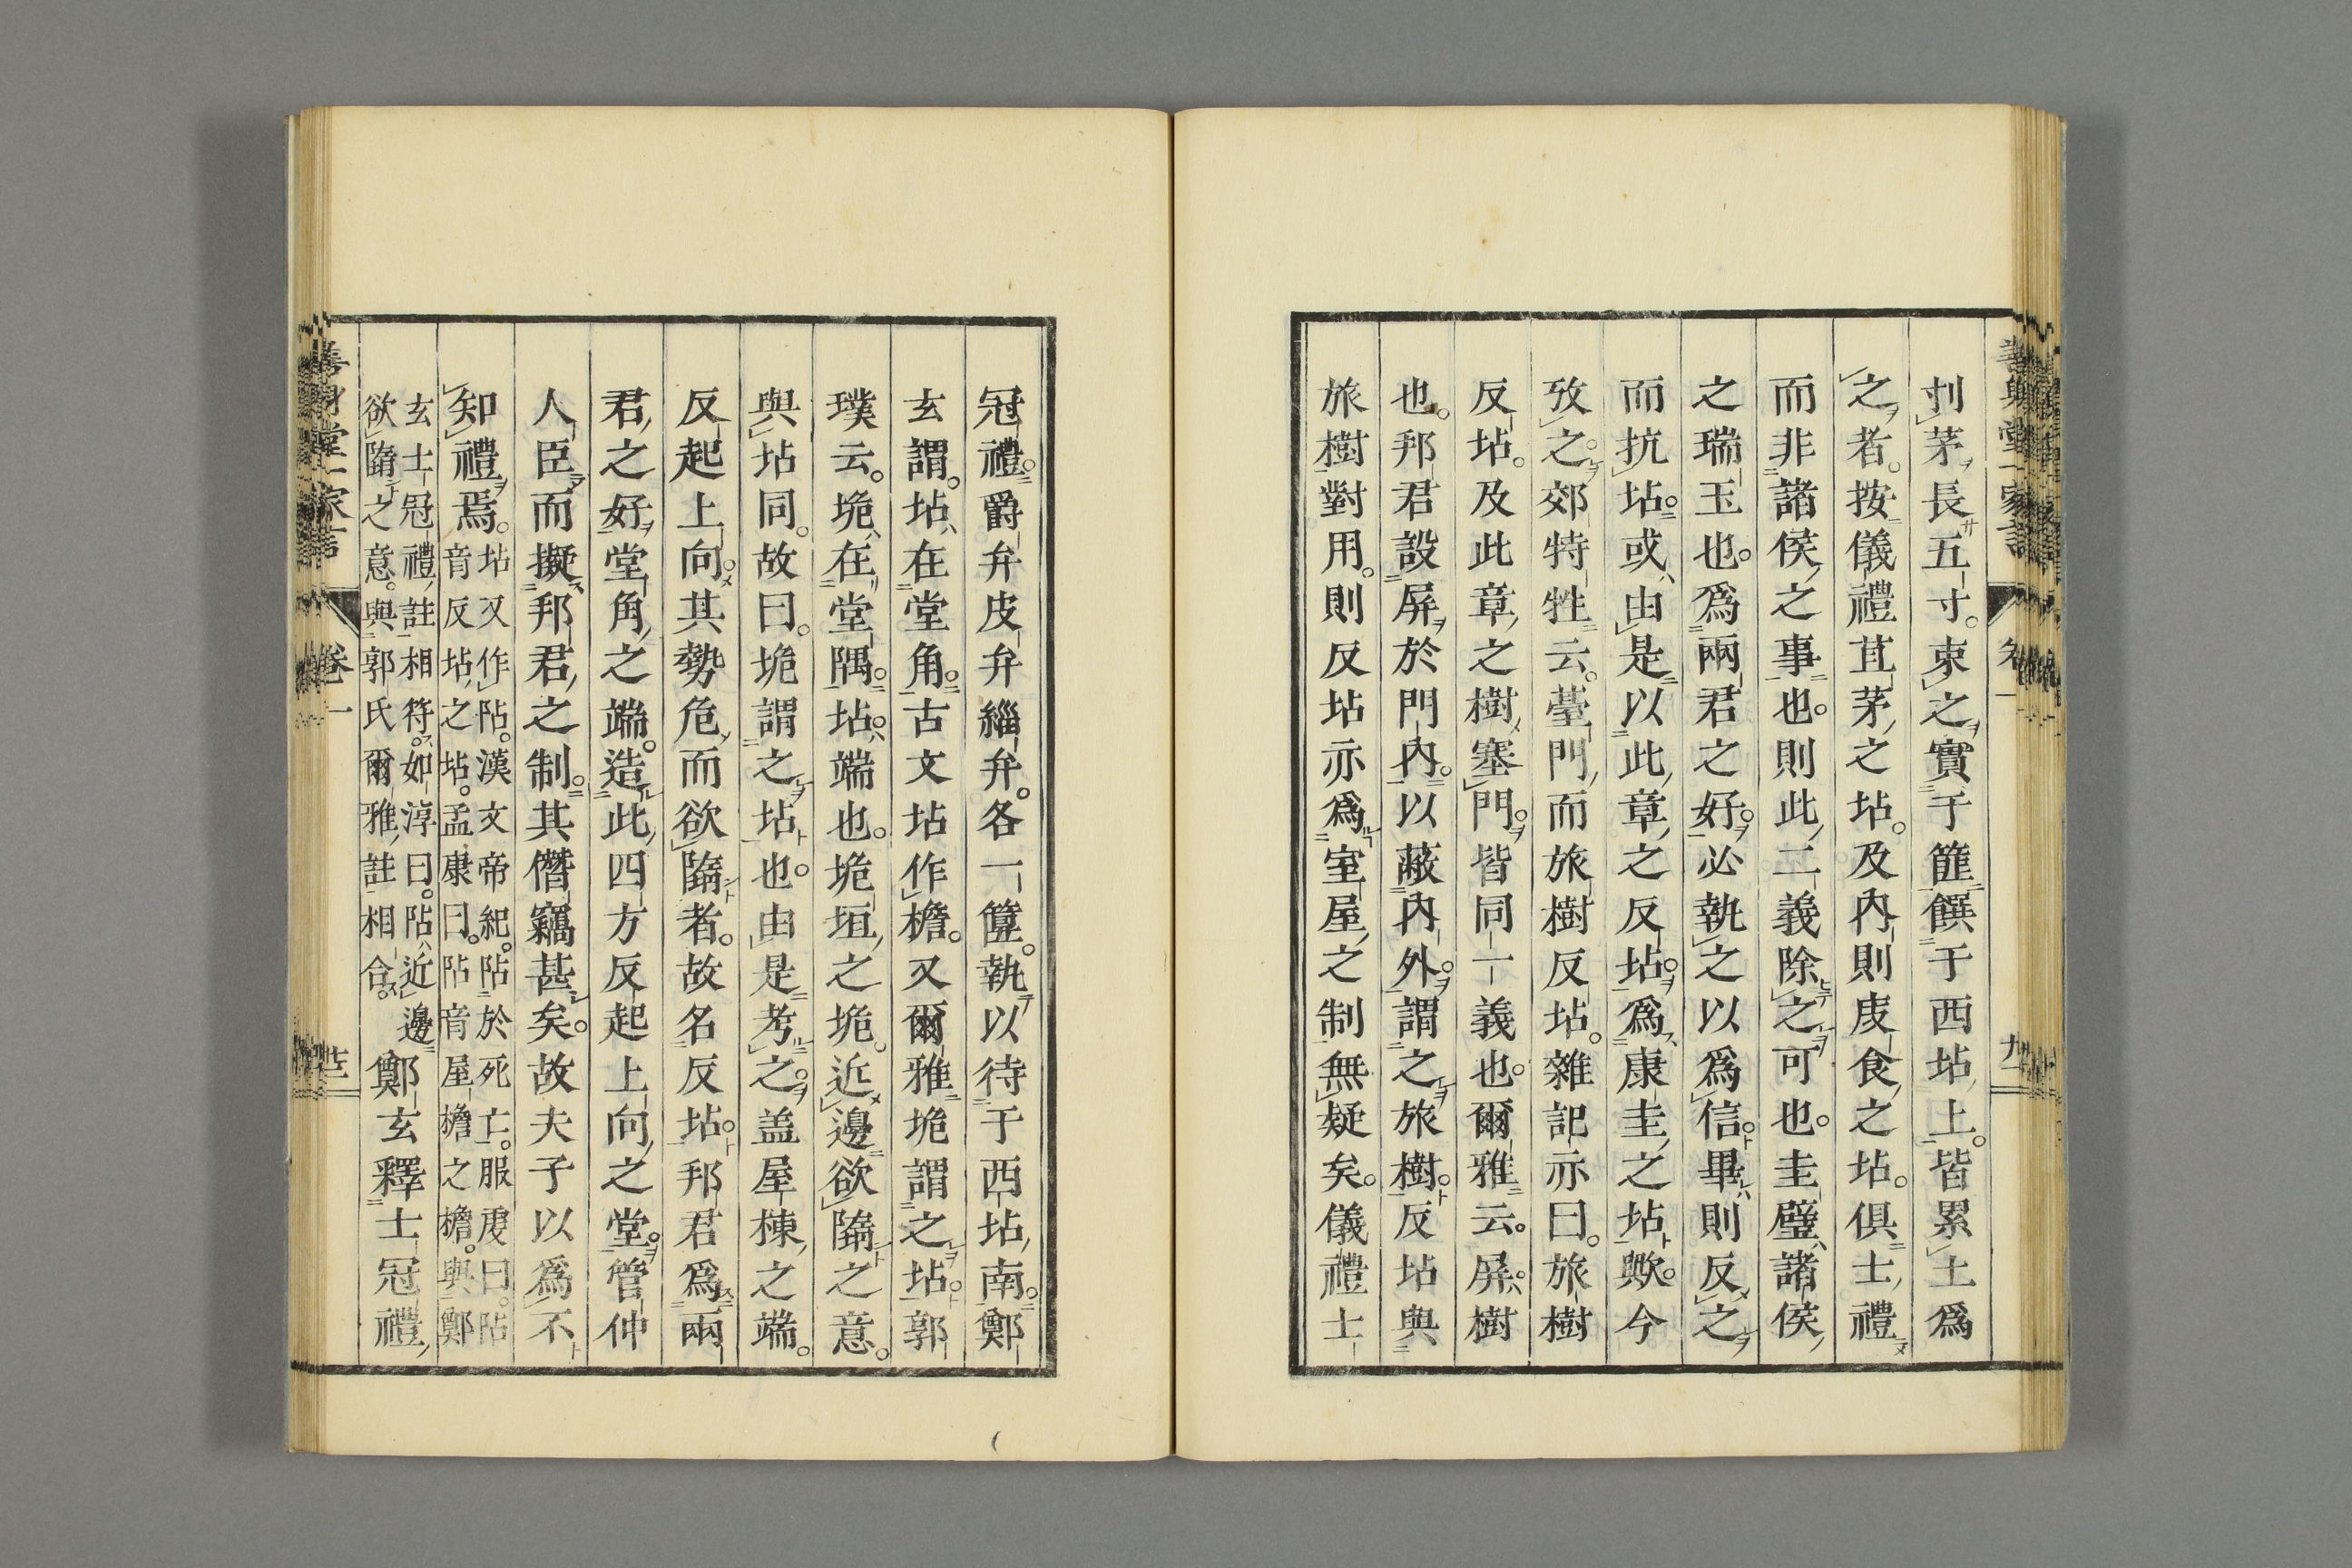 刌茅長五寸。束之實于篚饌于西坫上。皆累土爲
之者。按儀禮苴茅之坫。及內則庋食之坫。俱士禮
而非諸侯之事也。則此二義除之可也。圭璧諸侯
之瑞玉也。爲兩君之好。必執之以爲信。畢則反之
而抗坫。或由是以此章之反坫。爲康圭之坫歟。今
攷之。郊特牲云。臺門而旅樹反坫。雜記亦曰。旅樹
反坫。及此章之樹塞門。皆同一義也。爾雅云。屏樹
也。邦君設屏於門內。以蔽內外。謂之旅樹。反坫與
旅樹對用。則反坫亦爲室屋之制無疑矣。儀禮士
冠禮。爵弁皮弁緇弁。各一篹。執以待于西坫南。鄭
玄謂。坫在堂角。古文坫作檐。又爾雅垝謂之坫。郭
璞云。垝在堂隅。坫端也。垝垣之垝。近邊欲隮之意。
與坫同。故曰。垝謂之坫也。由是考之。盖屋棟之端。
反起上向。其勢危而欲隮者。故名反坫。邦君爲兩
君之好。堂角之端。造此四方反起上向之堂。管仲
人臣而擬邦君之制。其僭竊甚矣。故夫子以爲不
知禮焉。坫又作阽。漢文帝紀。阽於死亡。服虔曰。阽
音反坫之坫。孟康曰。阽音屋檐之檐。與鄭
玄士冠禮註相符。如淳曰。阽近邊
欲隮之意。與郭氏爾雅註相合。鄭玄釋士冠禮
卷一